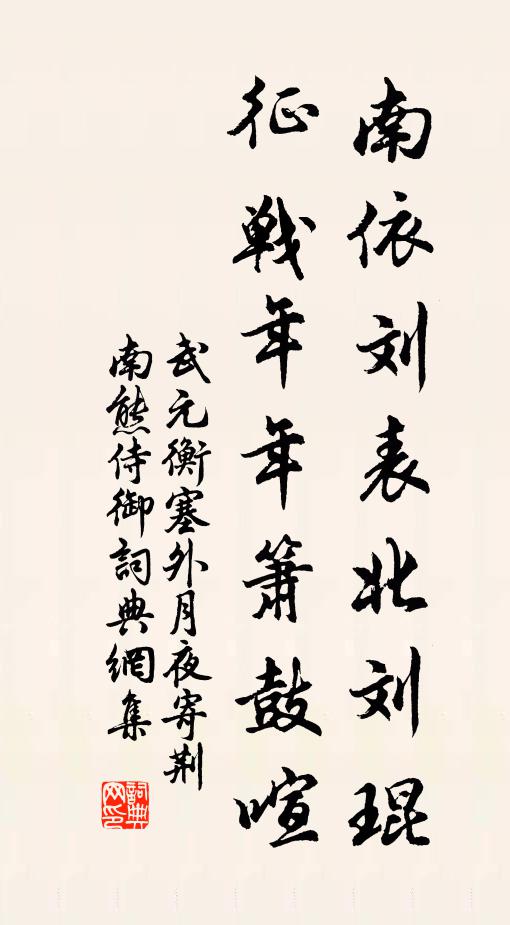 南依刘表北刘琨
征戦年年箫鼓喧
武元衡塞外月夜寄荆
南熊侍御詞典網集
詞典网印